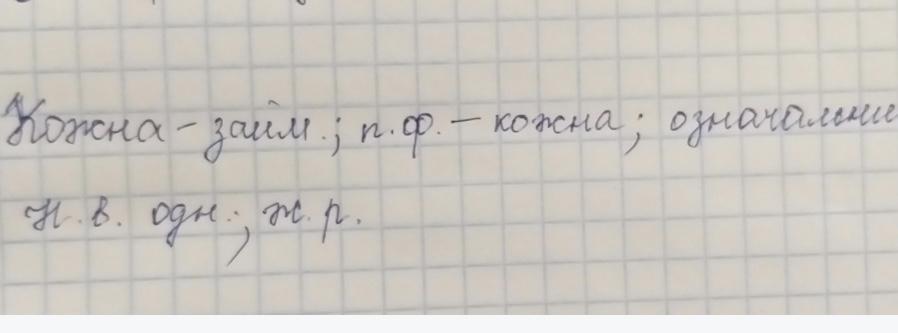 Кожна – займ.; п.ф. – кожна; означальни
Н.в. одн.; ж.р.